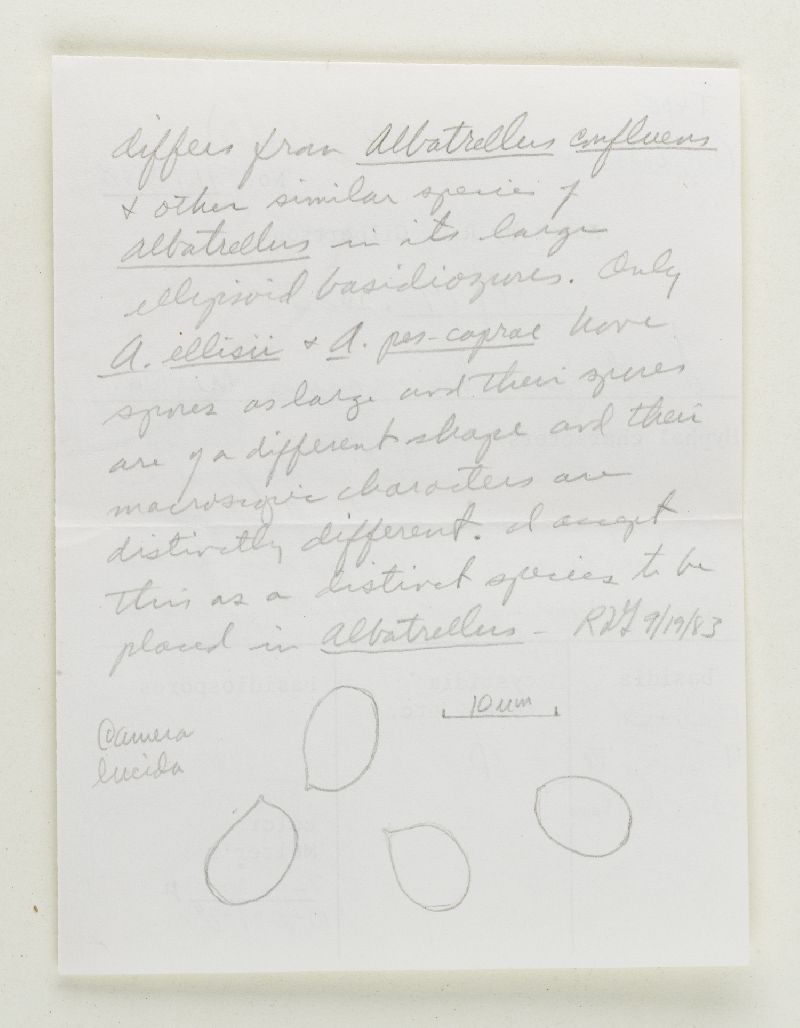 differs from Albatrellus confluens
& other similar species of
Albatrellus in its large
ellipsoid basidiospores. Only
A. ellisii & A. pes-caprae have
spores as large and their spores
are of a different shape and their
macroscopic characters are
distinctly different. I accept
this as a distinct species to be
placed in Albatrellus - RLG 9/19/83
10 um
Camera
lucida